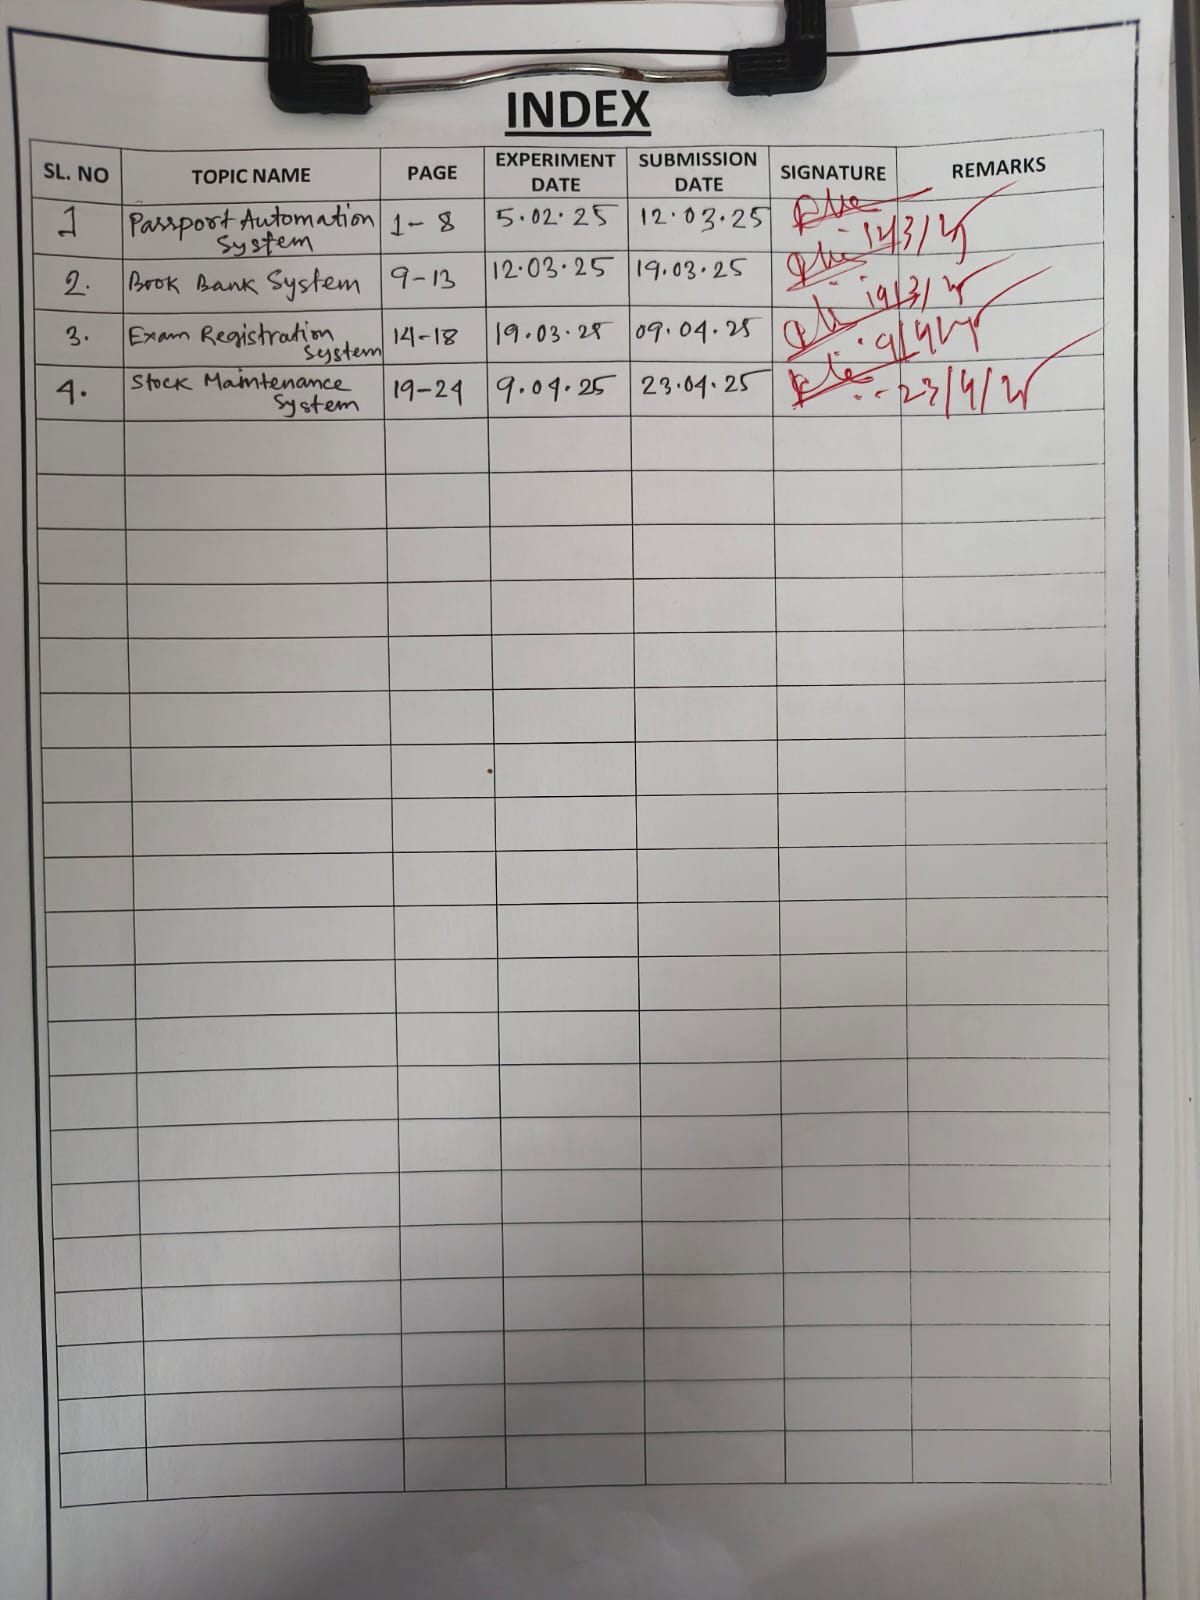 INDEX
SL. NO TOPIC NAME PAGE EXPERIMENT DATE SUBMISSION DATE SIGNATURE REMARKS
1 Passport Automation System 1-8 5.02.25 12.03.25 12/3/25
2. Book Bank System 9-13 12.03.25 19.03.25 19/3/25
3. Exam Registration System 14-18 19.03.25 09.04.25 9/4/25
4. Stock Maintenance System 19-24 9.04.25 23.04.25 23/4/25